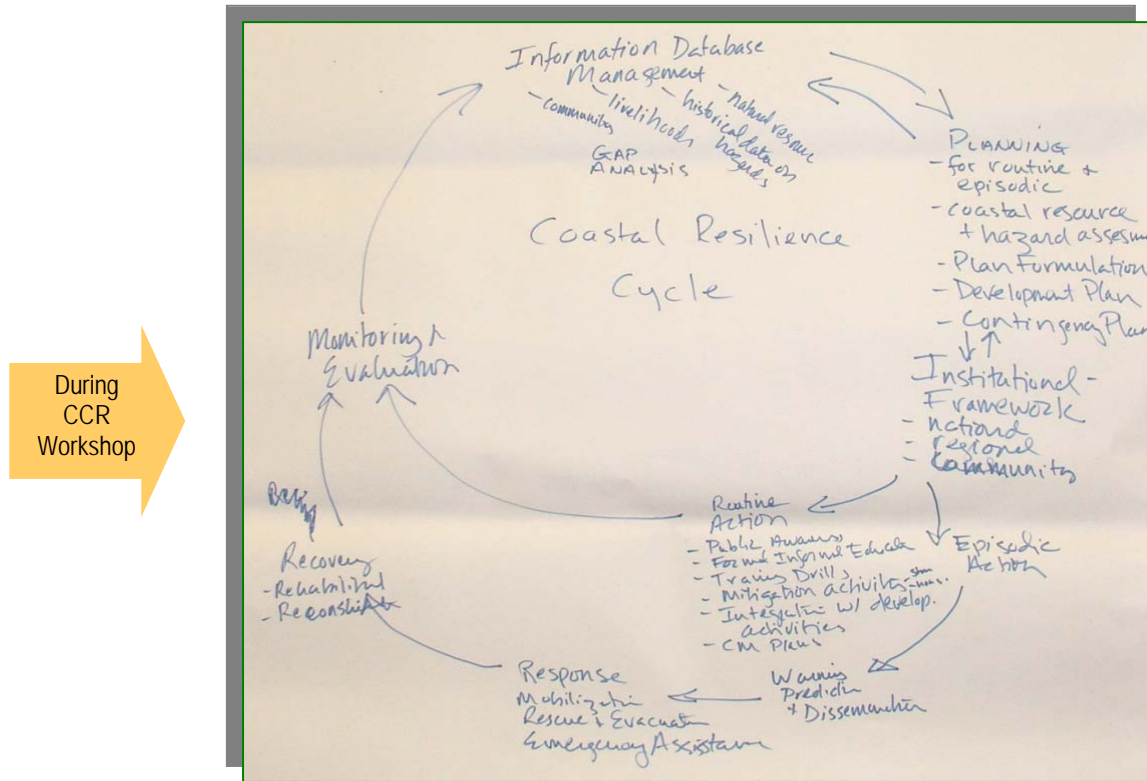 During
CCR
Workshop
Information Database
Management
- community
- livelihoods
- historical data on
hazards
- natural resource
GAP
ANALYSIS
Coastal Resilience
Cycle
PLANNING
- for routine +
episodic
- coastal resource
+ hazard assesm
- Plan Formulation
- Development Plan
- Contingency Plan
Institutional -
Framework
- national
- regional
- Community
Monitoring +
Evaluation
Routine
Action
- Public Awarness
- Formal Informal Educate
- Training Drills
- Mitigation activities
- Integration w/ develop.
activities
- CM Plans
Episodic
Action
Warning
Prediction
+ Dissemination
Response
Mobilization
Rescue + Evacuation
Emergency Assistance
Recovery
- Rehabilitat